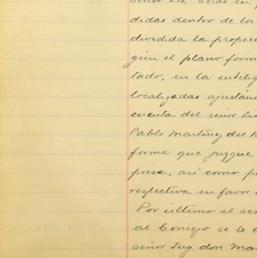 señor Lic. Elías en p
didas dentro de los
dividida la propied
gún el plano form
tado, en la intelig
localizadas ajustán
cuenta del señor Lic
Pablo Martínez del R
forma que juzgue
presa, así como p
respectiva en favor
Por último el se
al Consejo se le
señor Ing don Ma